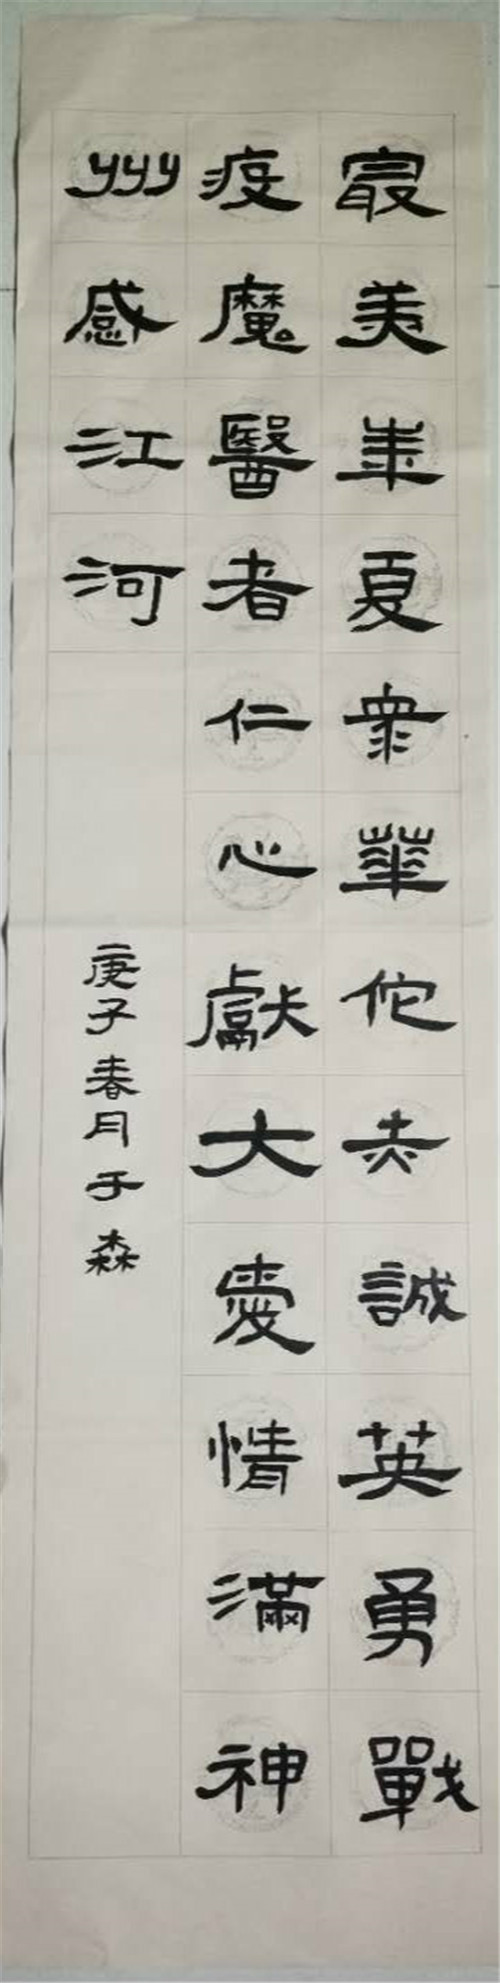 最美華夏眾華佗赤誠英勇戰
疫魔醫者仁心獻大愛情滿神
州感江河
庚子春月于森